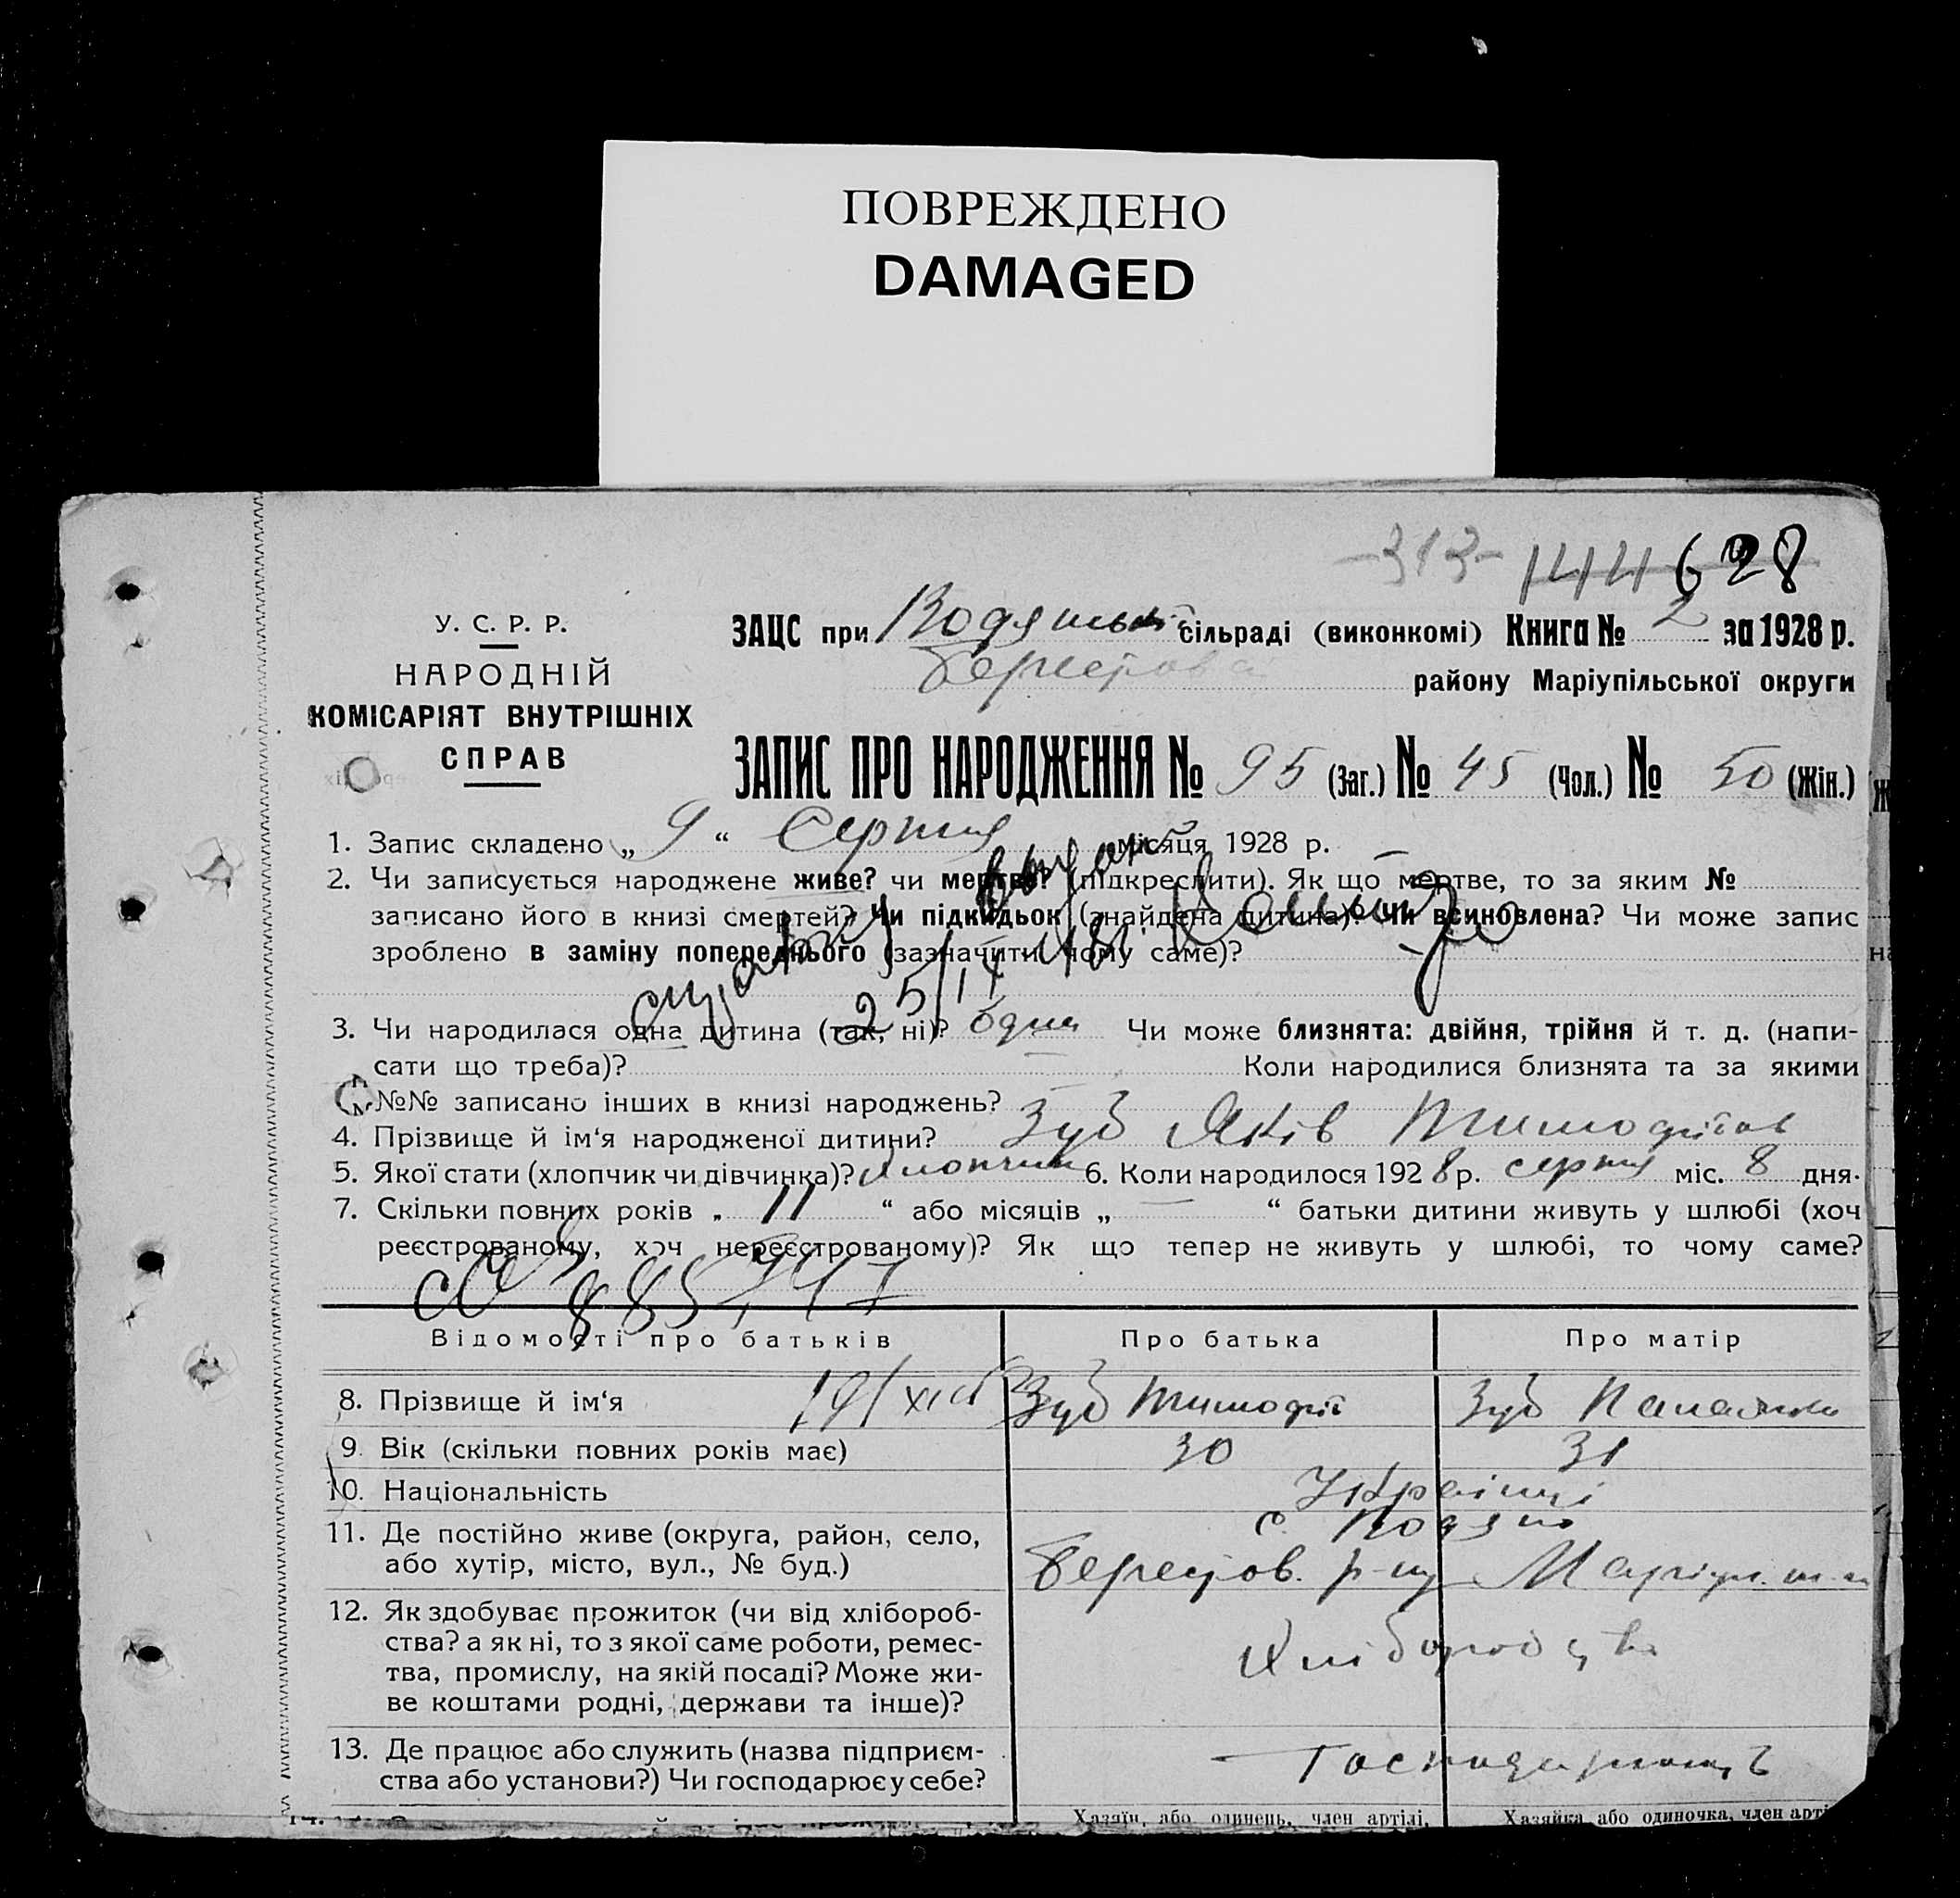 ПОВРЕЖДЕНО
DAMAGED
-313- 144 628
У. С. Р. Р.
НАРОДНІЙ
КОМІСАРІЯТ ВНУТРІШНІХ
СПРАВ
ЗАЦС при Водянській сільраді (виконкомі) Книга № 2 за 1928 р.
Берестова району Маріупільської округи
ЗАПИС ПРО НАРОДЖЕННЯ № 95 (Заг.) № 45 (Чол.) № 50 (Жін.)
1. Запис складено „ 9 “ Серпня місяця 1928 р.
2. Чи записується народжене живе? чи мертве? (підкреслити). Як що мертве, то за яким №
записано його в книзі смертей? Чи підкидьок (знайдена дитина)? Чи всиновлена? Чи може запис
зроблено в заміну попереднього (зазначити чому саме)?
3. Чи народилася одна дитина (так, ні)? одна Чи може близнята: двійня, трійня й т. д. (напи-
сати що треба)? Коли народилися близнята та за якими
№№ записано інших в книзі народжень?
4. Прізвище й ім‘я народженої дитини? Зуб Яків Тимофіїов
5. Якої стати (хлопчик чи дівчинка)? хлопчик 6. Коли народилося 1928 р. серпня міс. 8 дня.
7. Скільки повних років „ 11 “ або місяців „ — “ батьки дитини живуть у шлюбі (хоч
реєстрованому, хоч нереєстрованому)? Як що тепер не живуть у шлюбі, то чому саме?
Відомості про батьків Про батька Про матір
8. Прізвище й ім‘я Зуб Тимофій Зуб
9. Вік (скільки повних років має) 30 31
10. Національність Українці
11. Де постійно живе (округа, район, село, с. Водяно
або хутір, місто, вул., № буд.) Берестов. р-ну
12. Як здобуває прожиток (чи від хлібороб-
ства? а як ні, то з якої саме роботи, ремес- Хліборобство
тва, промислу, на якій посаді? Може жи-
ве коштами родні, держави та інше)?
13. Де працює або служить (назва підприєм-
ства або установи?) Чи господарює у себе?
Хазяїн, або одинець, член артілі, Хазяйка або одиночка, член арті